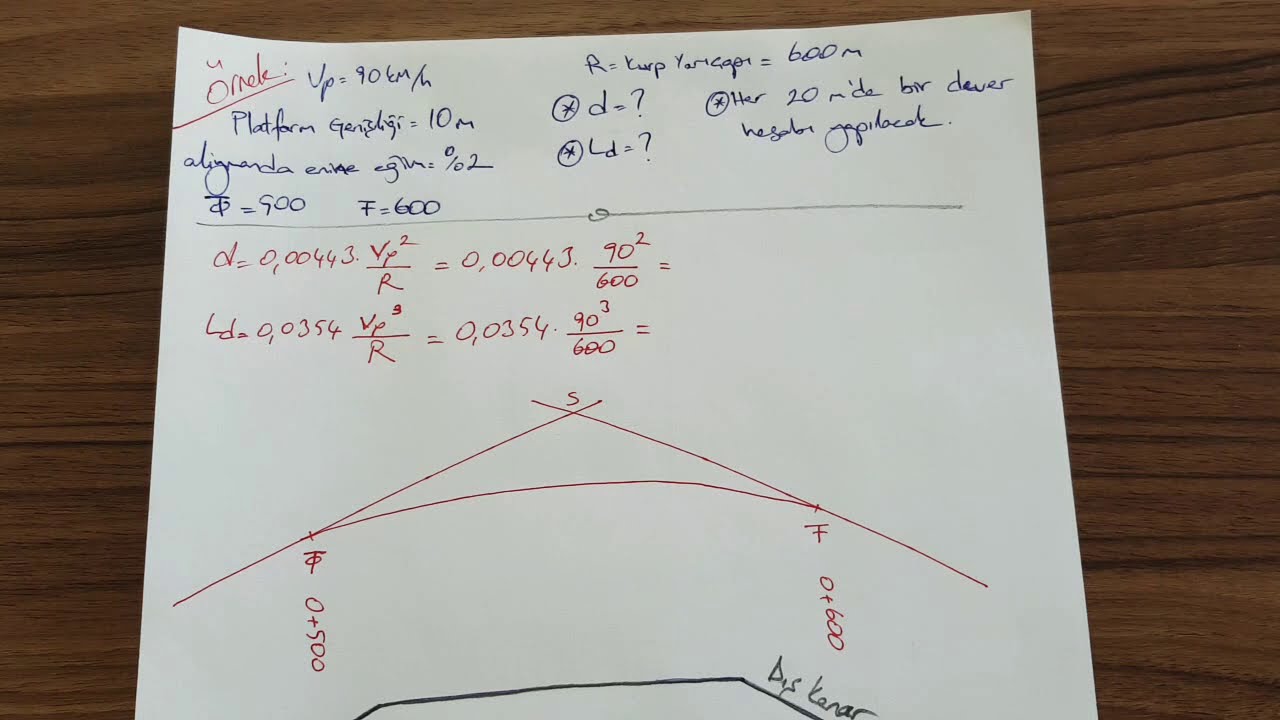 Örnek: Vp = 90 km/h
Platform Genişliği = 10 m
alignmanda enine eğim = %2
T̅O = 900 T = 600
R = Kurp Yarıçapı = 600 m
⊛ d = ?
⊛ Ld = ?
⊛ Her 20 m'de bir dever
hesabı yapılacak.
d = 0,00443 · Vp²/R = 0,00443 · 90²/600 =
Ld = 0,0354 Vp³/R = 0,0354 · 90³/600 =
S
T̅O
F
0+500
0+600
Dış Kenar